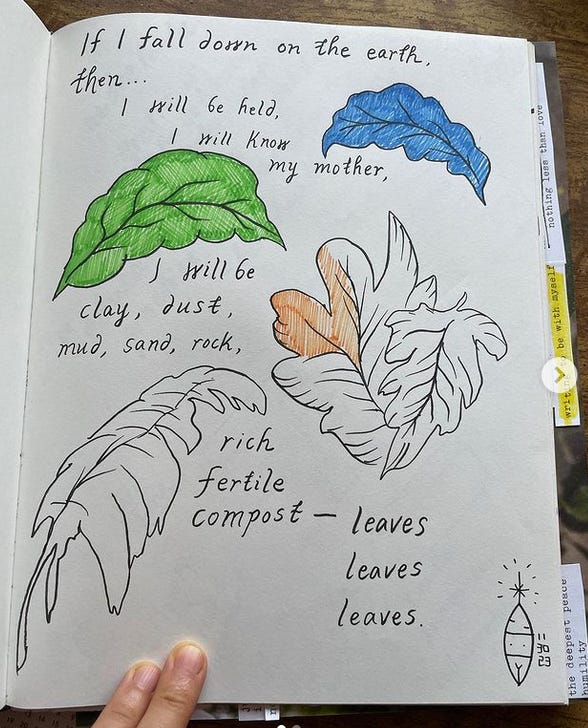 If I fall down on the earth,
then...
I will be held,
I will know
my mother,
I will be
clay, dust,
mud, sand, rock,
rich
fertile
compost — leaves
leaves
leaves.
nothing less than love
writing to be with myself
the deepest peace
humility